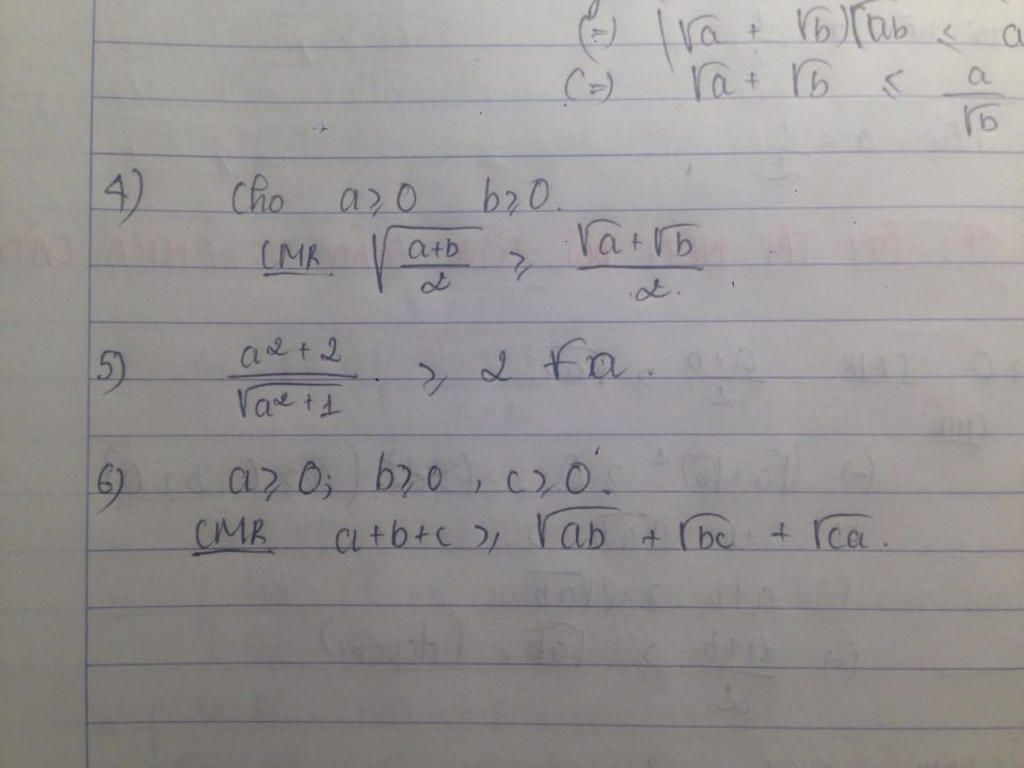 (=) (√a + √b)√ab ≤ a
(=) √a + √b ≤ a/√b
4) Cho a ≥ 0 b ≥ 0.
CMR √((a+b)/2) ≥ (√a + √b)/2.
5) (a² + 2)/√(a² + 1) ≥ 2 √a.
6) a ≥ 0; b ≥ 0, c ≥ 0.
CMR a + b + c ≥ √ab + √bc + √ca.